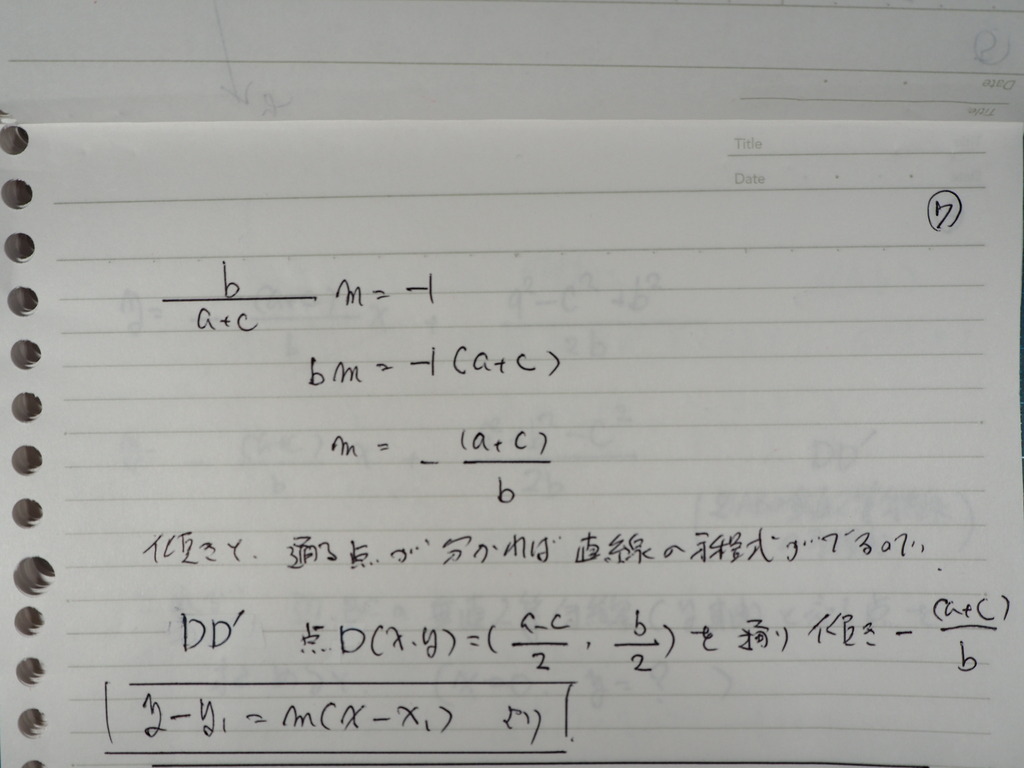 Title
Date
⑦
b/(a+c) m = -1
bm = -1 (a+c)
m = - (a+c)/b
傾きと、通る点が分かれば直線の方程式がでるので、
DD′ 点D(x,y)=((a-c)/2, b/2)を通り傾き-(a+c)/b
y-y₁=m(x-x₁) より